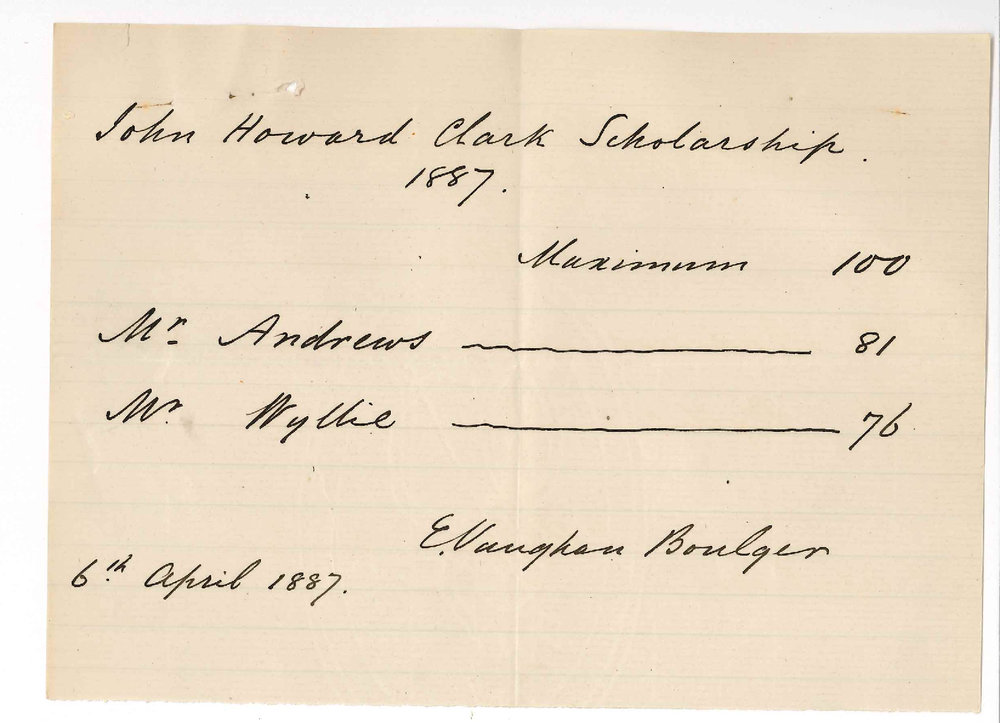 John Howard Clark Scholarship.
1887.
Maximum 100
Mr. Andrews 81
Mr. Wyllie 76
E. Vaughan Boulger
6th April 1887.